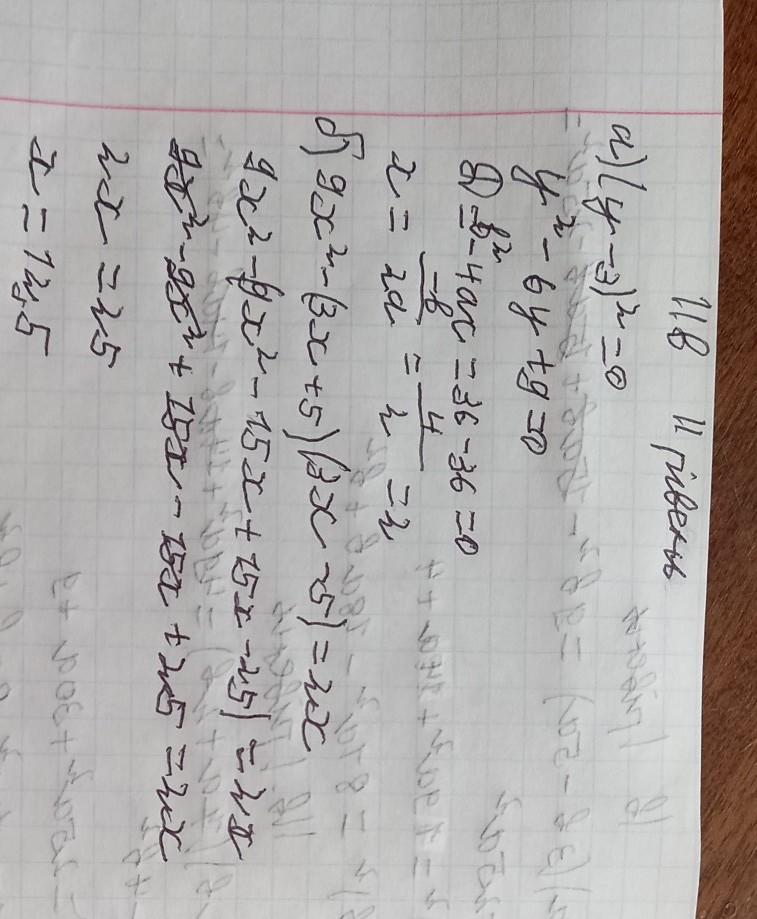 11в II рівень
а) (y - 3)² = 0
y² - 6y + 9 = 0
D = b² - 4ac = 36 - 36 = 0
x = -b/2a = 4/2 = 2
б) 9x² - (3x + 5)(3x - 5) = 2x
9x² - (9x² - 15x + 15x - 25) = 2x
9x² - 9x² + 15x - 15x + 25 = 2x
2x = 25
x = 12,5